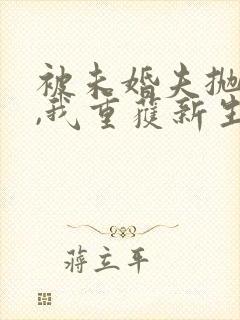 被未婚夫抛
,我重获新生
蒋立平